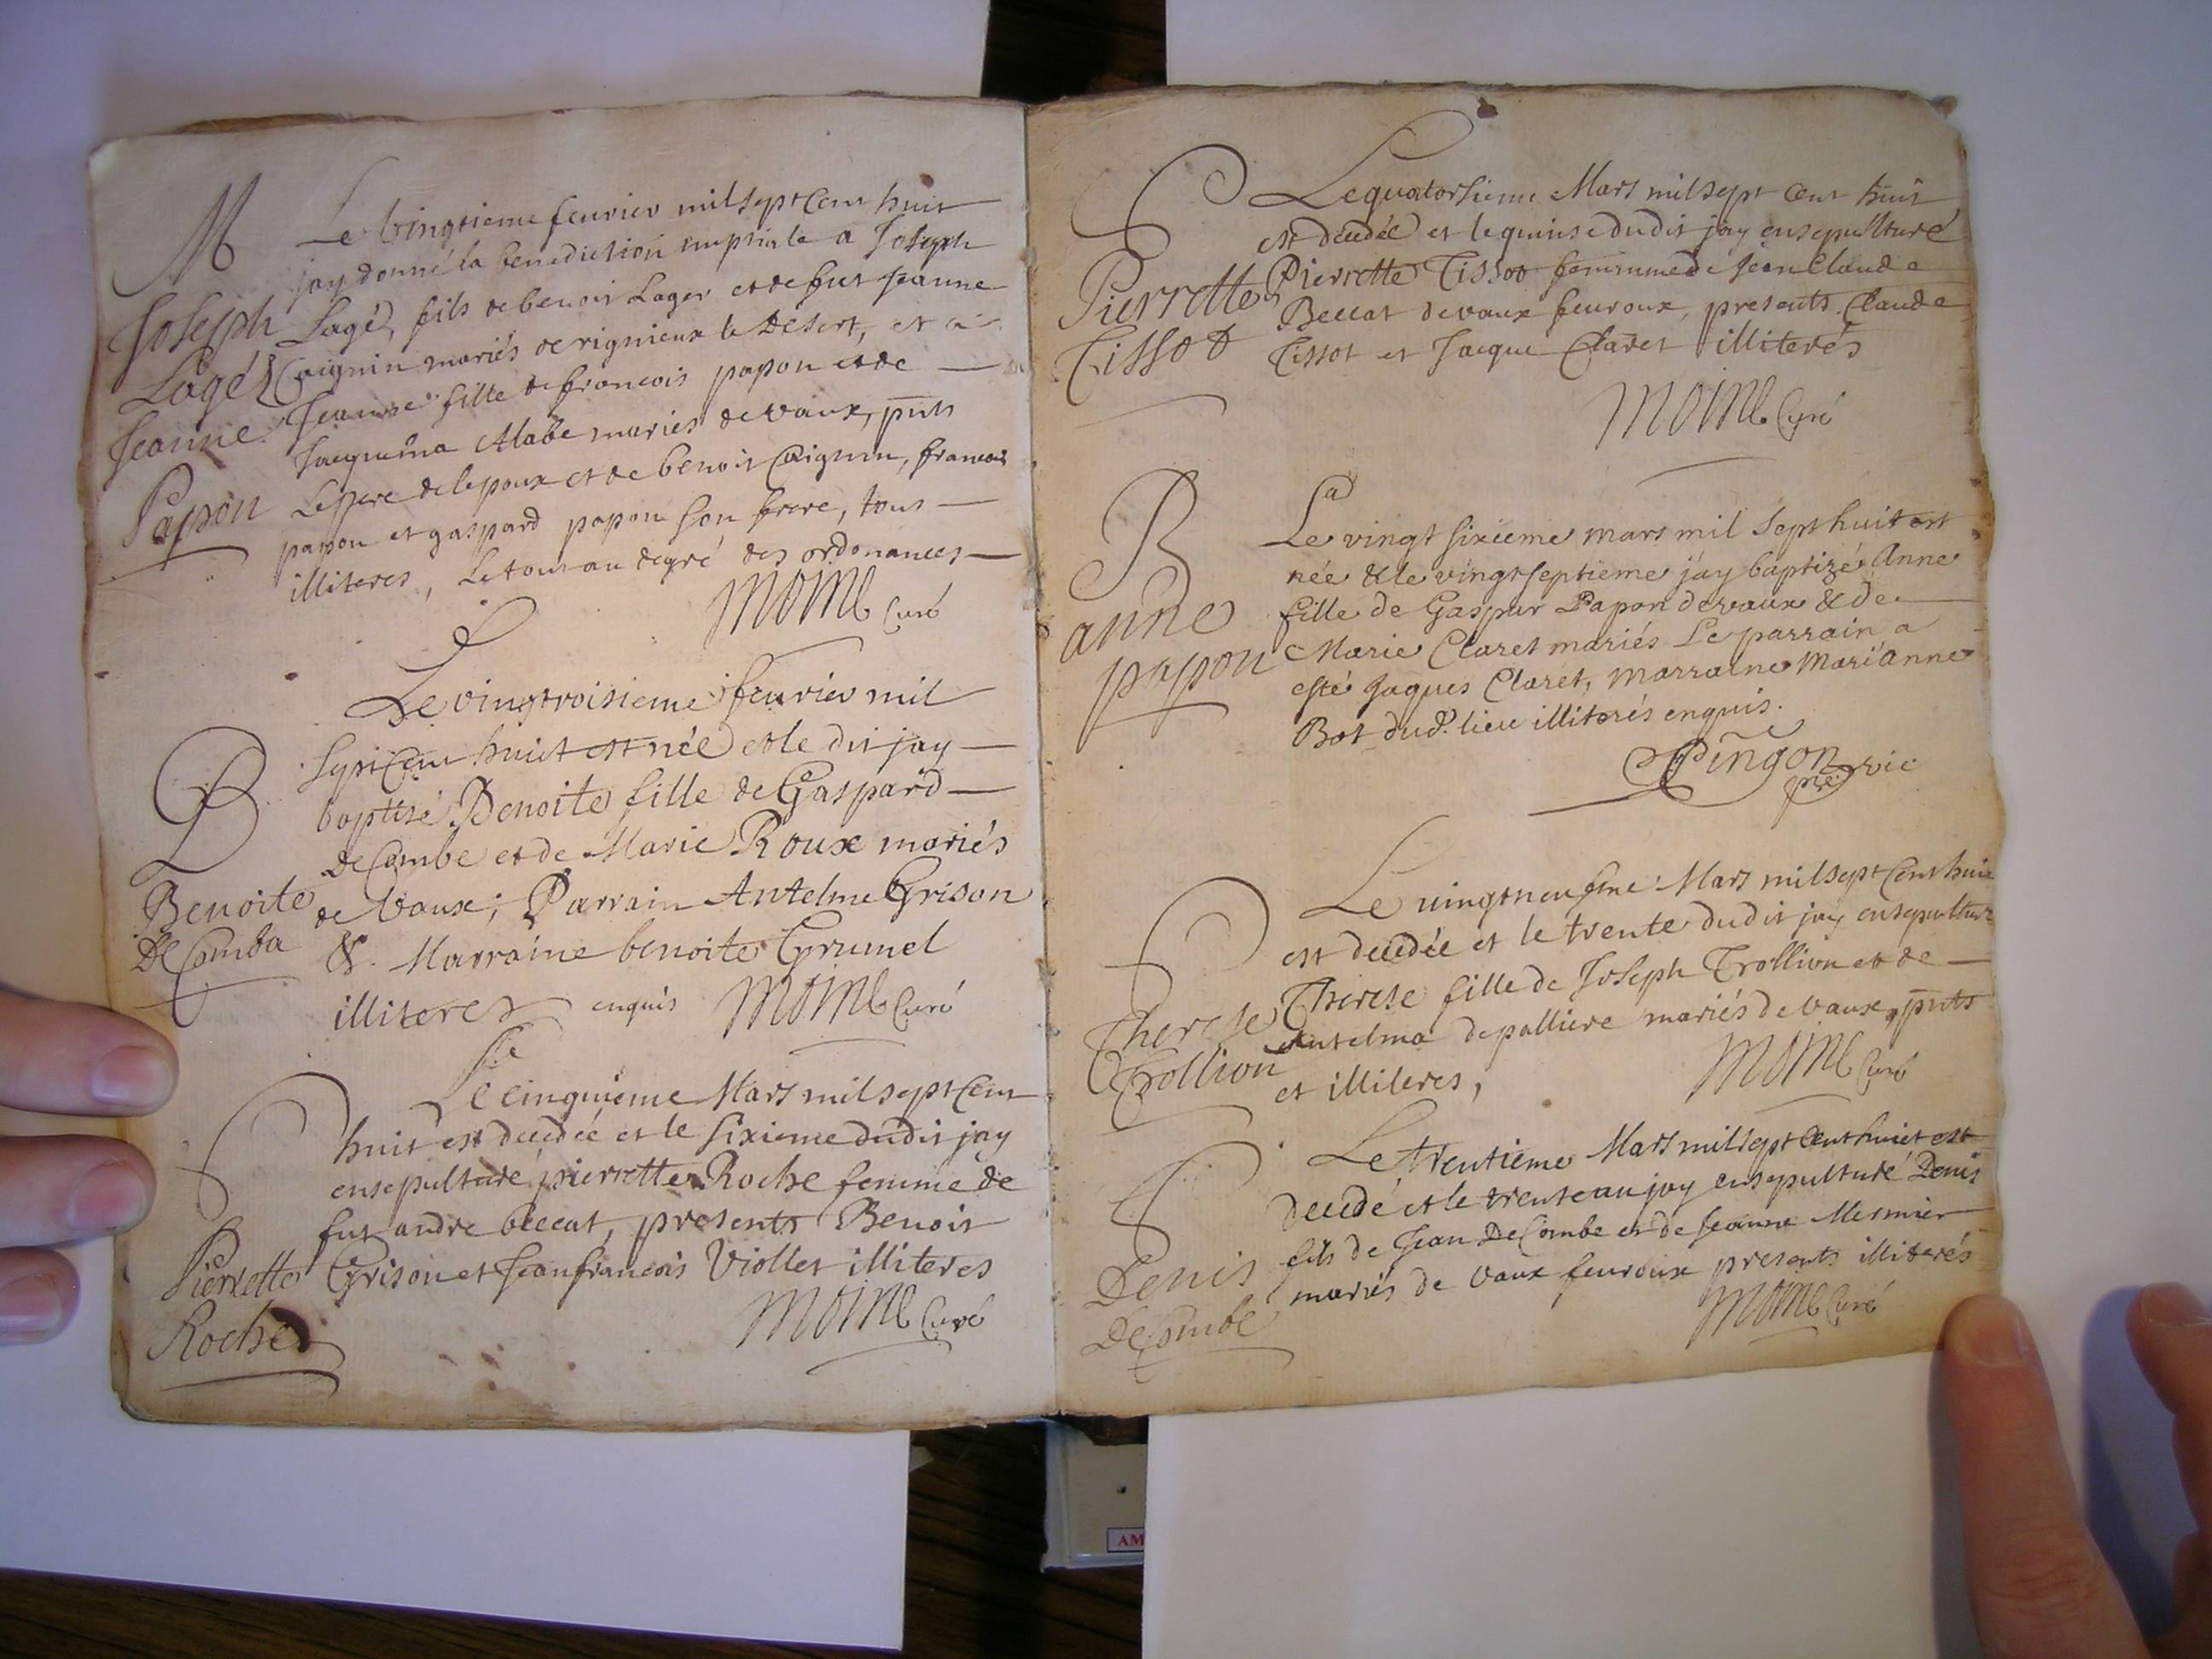 M
Joseph
Lagé &
Jeanne
Papon
Le vingtieme feuvrier mil sept cent huit
jay donné la benediction nuptiale a Joseph
Lagé, fils de benoit Lager et de fut Jeanne
Caignin mariés de rignieux le Desert, et a
Jeanne fille de francois papon et de
Jacquema Mabe mariés de vaux, pnts
Le pere de lepoux et de benoit Caignin, francois
papon et gaspard papon son frere, tous
illiteres, Le tout au degré des ordonances
Moine Curé
B
Benoite
De Comba
Le vingtroisieme feuvrier mil
sept cent huit est née et le dit jay
baptisé Benoite fille de Gaspard
De Combe et de Marie Roux mariés
de Vaux; Parrain Antelme Grison
&. Marraine benoite Grumel
illiteres enquis Moine Curé
Pierrette
Roche
Le cinquieme Mars mil sept cent
huit est decedée et le sixieme dudit jay
ensepulturé pierrette Roche femme de
fut andre beccat, presents Benoit
Grison et Jean francois Viollet illiteres
Moine Curé
Pierrette
Tissot
Le quatorsieme Mars mil sept cent huit
est decedée et le quinse dudit jay ensepulturé
Pierrette Tissot femme de Jean Claude
Beccat de vaux feuroux, presents Claude
Tissot et Jacque Claret illiterés
Moine Curé
B
anne
papon
La
Le vingt sixieme mars mil sept huit est
née & le vingt septieme j'ay baptizé Anne
fille de Gaspar Papon de vaux & de
Marie Claret mariés Le parrain a
esté Jaques Claret, marraine Marianne
Bot dud.t lieu illiterés enquis.
Pingon
pre vic
Therese
Trollion
Le vingtneufme Mars mil sept cent huit
est decedée et le trente dudit jay ensepulturé
Therese fille de Joseph Trollion et de
Antelma depalliere mariés de vaux pnts
et illiteres, Moine Curé
Denis
De Combe
Le trentieme Mars mil sept cent huict est
decedé et le trente au jay ensepulturé Denis
fils de Jean De Combe et de Jeanne Mesmier
mariés de Vaux feuroux presents illiterés
Moine Curé
AM